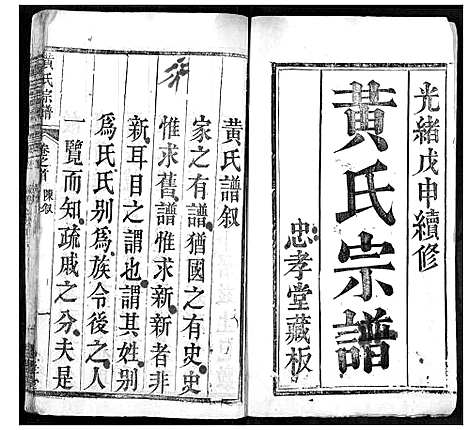 光緒戊申續修
黃氏宗譜
忠孝堂藏板
黃氏譜叙
家之有譜猶國之有史史
惟求舊譜惟求新新者非
新耳目之謂也謂其姓別
為氏氏別為族令後之人
一覽而知疏戚之分夫是
黃氏宗譜
卷之首
陳叙